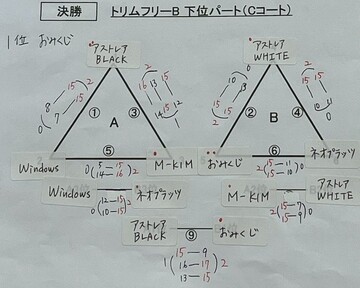 決勝 トリムフリーB 下位パート(Cコート)
1位 おみくじ
アストレア BLACK
アストレア WHITE
8 15 2
0 7 15
2 15
16 13 15
14 15 12 1
① ③
A
⑤
② ④
B
⑥
Windows
0(5-15 14-16)2
M-KIM
おみくじ
2(15-11 15-10)0
ネオプラッツ
Windows
0(12-15 10-15)2
ネオプラッツ
M-KIM
2(15-7 15-9)0
アストレア WHITE
アストレア BLACK
⑨
おみくじ
15-9
1(16-17)2
13-15